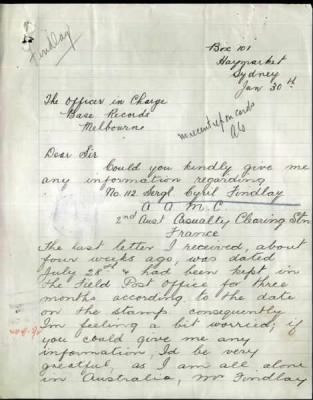 Findlay
Box 101
Haymarket
Sydney
Jan 30th
The Officer in Charge
Base Records
Melbourne
no recent report on cards
Dear Sir
Could you kindly give me
any information regarding
No. 112 Sergt. Cyril Findlay
A A M C
2nd Aust Casualty Clearing Stn
France
The last letter I received, about
four weeks ago, was dated
July 28th & had been kept in
the Field Post Office for three
months according to the date
on the stamp, consequently
Im feeling a bit worried; if
you could give me any
information, Id be very
grateful, as I am all alone
in Australia, Mr Findlay